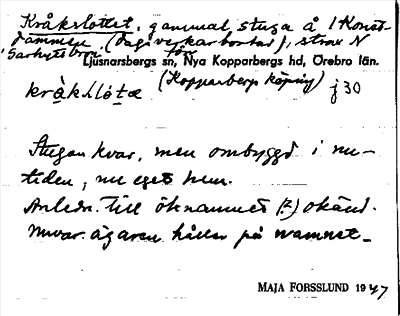 Kråkslottet, gammal stuga å 1 Konst-
dammen, (dags verkar bortas), strax N
Garhytte bron. för
Ljusnarsbergs sn, Nya Kopparbergs hd, Örebro län.
(Kopparbergs köping) j 30
Stugan kvar, men ombyggd i nu-
tiden, nu eget hem.
Anledn. till öknamnet (?) okänd.
Nuvar. ägaren håller på namnet.
MAJA FORSSLUND 1947